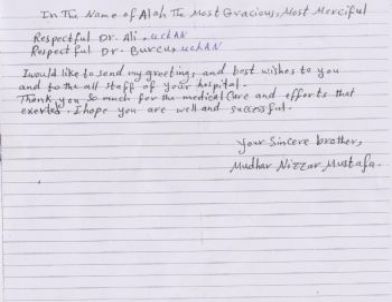 In The Name of Alah The Most Gracious, Most Merciful
Respectful Dr. Ali. uchAN
Respectful Dr. Burcu. uchAN
I would like to send my greetings and best wishes to you
and to the all staff of your hospital.
Thank you so much for the medical Care and efforts that
exerted. I hope you are well and successful.
Your Sincere brother,
Mudhar Nizzar Mustafa.